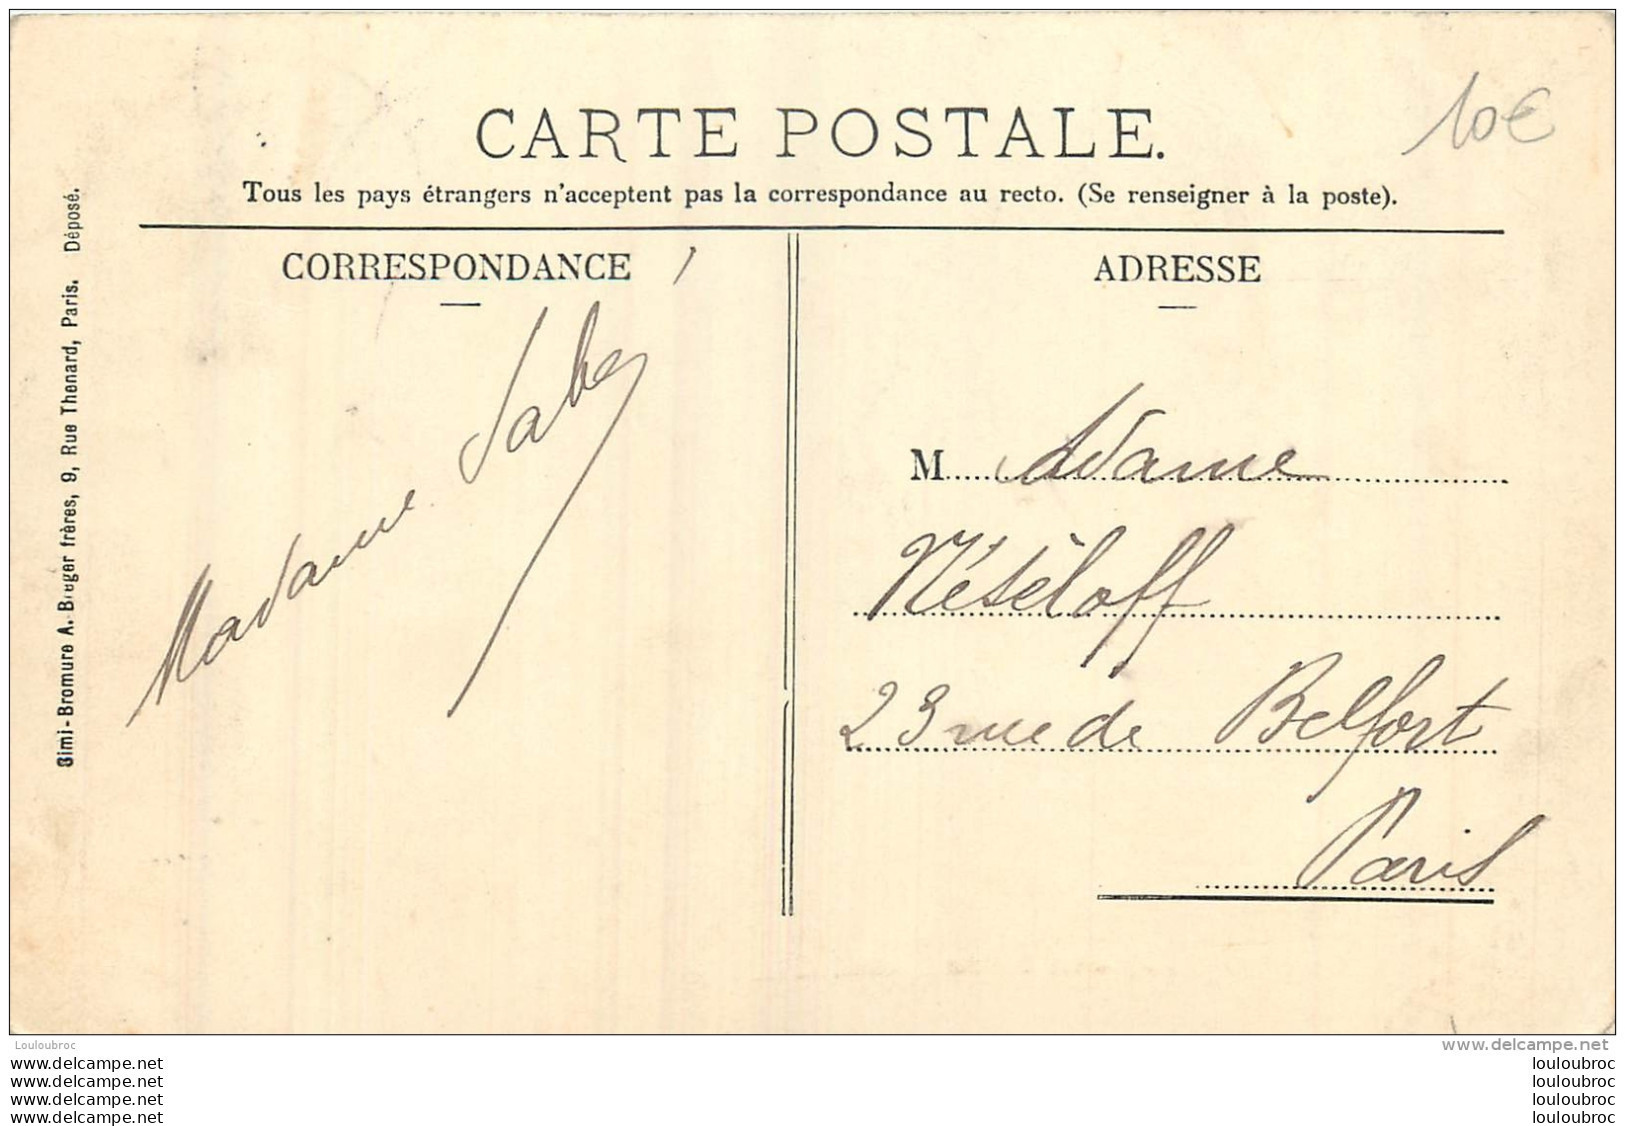 10€
CARTE POSTALE.
Tous les pays étrangers n'acceptent pas la correspondance au recto. (Se renseigner à la poste).
CORRESPONDANCE
Madame
ADRESSE
M Adame
Néséloff
23 rue de Belfort
Paris
Simi-Bromure A. Breger frères, 9, Rue Thenard, Paris. Déposé.
Louloubroc
www.delcampe.net
www.delcampe.net louloubroc
www.delcampe.net louloubroc
www.delcampe.net louloubroc
www.delcampe.net louloubroc